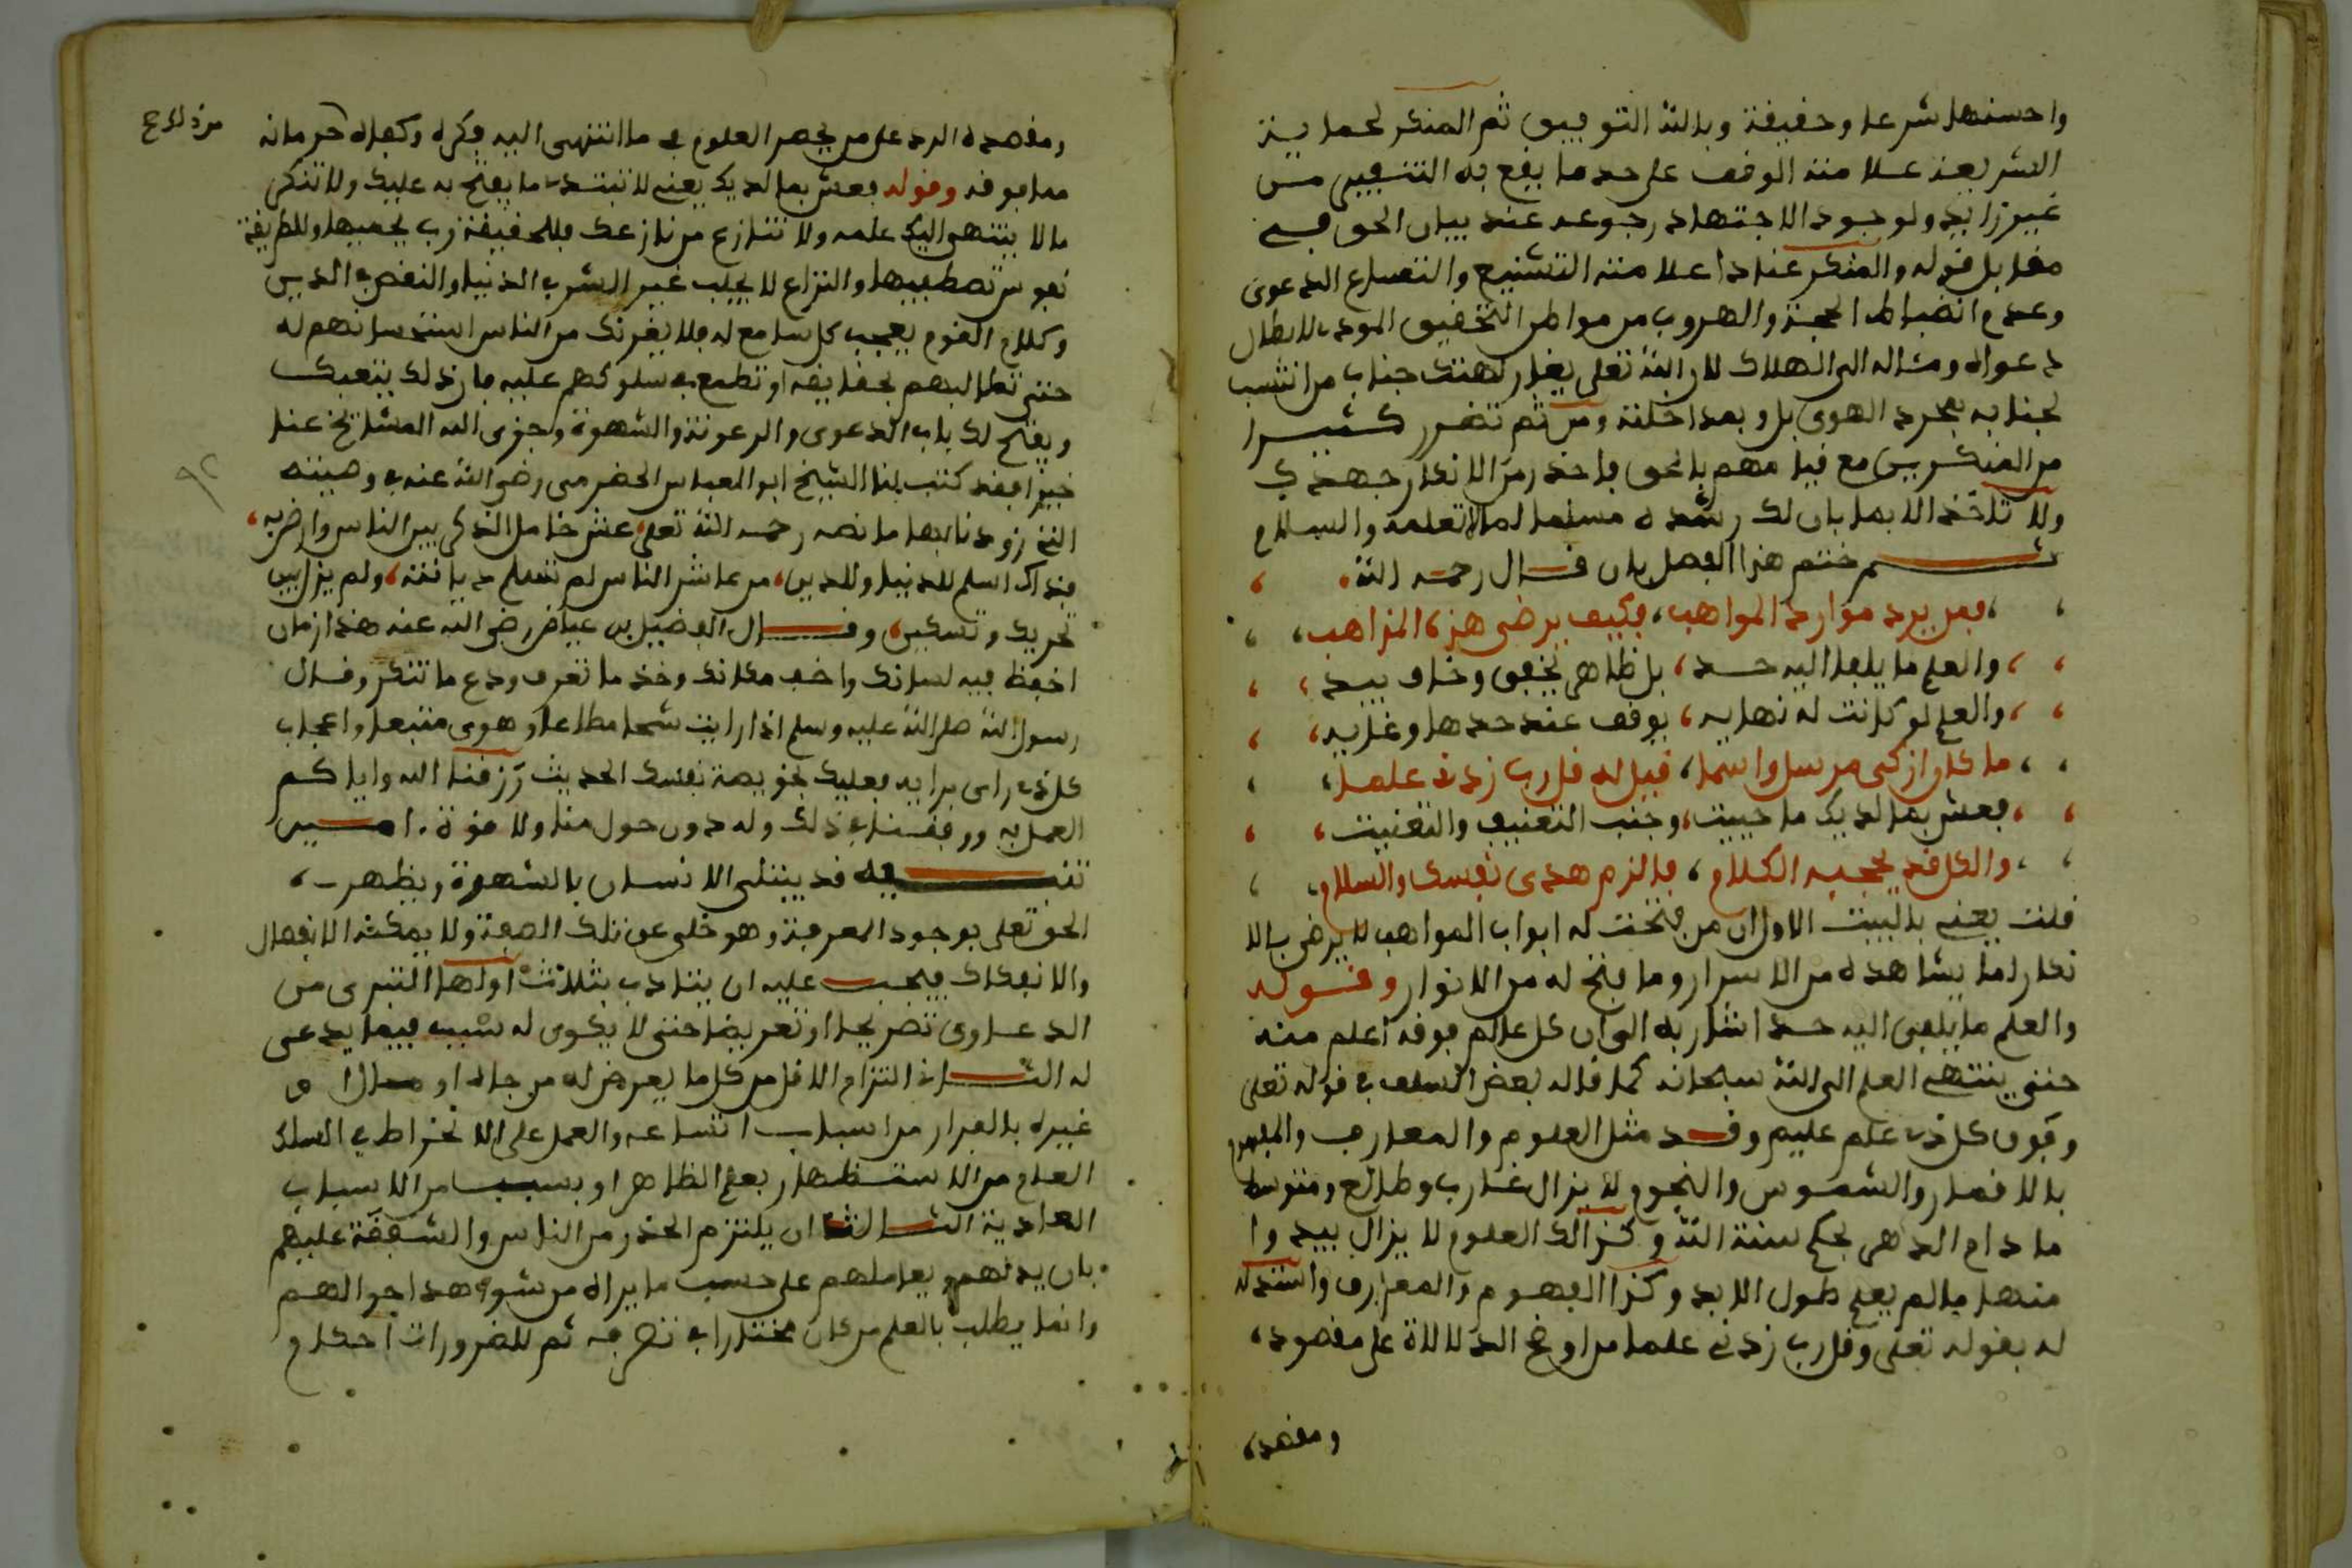 واحسنها شرعا وحقيقة وبالله التوفيق ثم المنكر لحماية
الشريعة علامته الوقف على حد ما يقع به التنقيص من
غير زايد ولوجود الاجتهاد رجوعه عند بيان الحق فهو
مقابل قوله والمنكر عنادا علامته التشنيع والتصارع الدعوى
وعدم انضباط الحجة والهروب من مواطن التحقيق المودي لابطال
دعواه ومثاله الى الهلاك لان الله تعلى يغار لهتك جناب من انتسب
لجنابه بمجرد الهوى بل وبمداخلته ومن ثم تضرر كثيرا
من المنكرين مع قيامهم بالحق فاحذر من الانكار جهدك
ولا تاخذ الا بما بان لك رشده مسلما لما لا تعلمه والسلام
ثم ختم هذا الفصل بان قال رحمه الله
فمن يرد موارد المواهب، فكيف يرضى هذه المذاهب،
والعلم ما يلفا اليه حد، بل ظاهر يخفى وخاف يبد،
والعلم لو كانت له نهايه، يوقف عند حدها وغايه،
ما كان ازكى مرسل واسما، قيل له قل رب زدني علما،
فعش بما لديك ما حييت، وجنب التعنيف والتعنيت،
والكل قد يعجبه الكلام، فالزم هدى نفسك والسلام،
قلت يعني بالبيت الاول ان من فتحت له ابواب المواهب لا يرضى بالا
نكار لما يشاهده من الاسرار وما فتح له من الانوار وقوله
والعلم ما يلفى اليه حد اشار به الى ان كل عالم فوقه اعلم منه
حتى ينتهي العلم الى الله سبحانه كما قاله بعض السلف في قوله تعلى
وفوق كل ذي علم عليم وقد مثل العلوم والمعارف والفهوم
بالاقمار والشموس والنجوم لا يزال غارب وطالع ومتوسط
ما دام الدهر بحكم سنة الله وكذالك العلوم لا يزال يبدوا
منها ما لم يعلم طول الابد وكذا الفهوم والمعارف واستدلاله
له بقوله تعلى وقل رب زدني علما من اوضح الدلالة على مقصوده،
ومقصده
ومقصده الرد على من يحصر العلوم في ما انتهى اليه فكره وكفاه حرمانه
مما فوقه وقوله فعش بما لديك يعني لا تبتدى ما يفتح به عليك ولا تنكر
ما لا ينتهى اليك علمه ولا تنازع من نازعك فللحقيقة رب يحميها وللطريقة
نفوس تصطفيها والنزاع لا يجلب غير الشر في الدنيا والنقص في الدين
وكلام القوم يعجب كل سامع له فلا يغرنك من الناس استحسانهم له
حتى تطالبهم بحقايقه او تطمع في سلوكهم عليه فان ذلك يتعبك
ويفتح لك باب الدعوى والرعونة والشهوة وجزى الله المشايخ عنا
خيرا فقد كتب لنا الشيخ ابو العباس الحضرمي رضي الله عنه في وصيته
التي زودنا بها ما نصه رحمه الله تعلى، عش خامل الذكر بين الناس وارض به،
فذاك اسلم للدنيا وللدين، من عاشر الناس لم تسلم ديانته، ولم يزل بين
تحريك وتسكين، وقال الفضيل بن عياض رضي الله عنه هذا زمان
احفظ فيه لسانك واخف مكانك وخذ ما تعرف ودع ما تنكر وقال
رسول الله صلى الله عليه وسلم اذا رايت شحا مطاعا وهوى متبعا واعجاب
كل ذي راى برايه فعليك بخويصة نفسك الحديث رزقنا الله واياكم
العمل به ووفقنا في ذلك وله دون حول منا ولا قوة. امين
تنبيه قد يبتلى الانسان بالشهرة ويظهر
الحق تعلى بوجود المعرفة وهو خلي عن تلك الصفة ولا يمكنه الانفصال
والانفكاك فيجب عليه ان يتادب بثلاث اولها التبرى من
الدعاوى تصريحا وتعريضا حتى لا يكون له شبه فيما يدعى
له الثاني التزام الاقل من كل ما يعرض له من جاه او مال او
غيره بالفرار من اسباب اتساعه والعمل على الانخراط في السلك
العام من الاستظهار بعلم الظاهر او بسبب من الاسباب
العادية الثالث ان يلتزم الحذر من الناس والشفقة عليهم
بان يدلهم ويعاملهم على حسب ما يراه من شواهد احوالهم
وانما يطلب بالعلم من كان مختارا في تصرفه ثم للضرورات احكام
من ذلك ع
٩٢